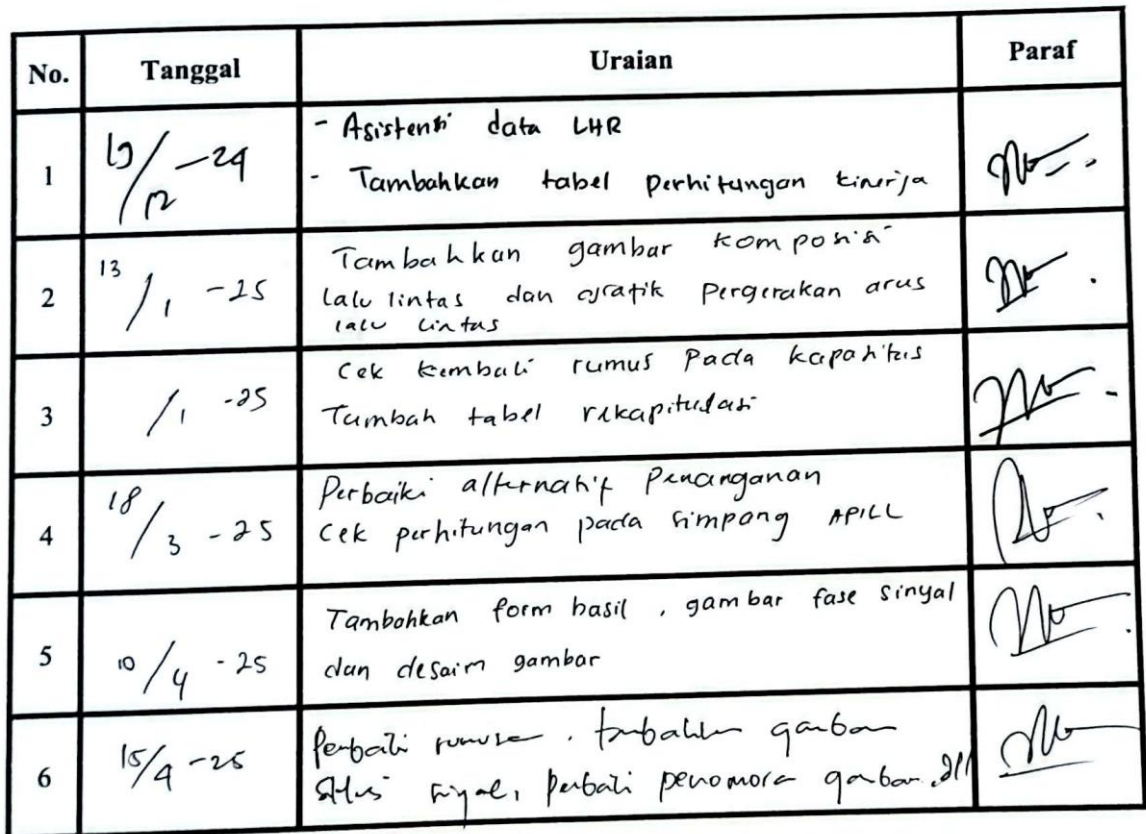 No. Tanggal Uraian Paraf
1 19/12 -24
- Asistensi data LHR
- Tambahkan tabel perhitungan kinerja
2 13/1 -25
Tambahkan gambar komposisi
lalu lintas dan grafik pergerakan arus
lalu lintas
3 /1 -25
Cek kembali rumus pada kapasitas
Tambah tabel rekapitulasi
4 18/3 -25
Perbaiki alternatif penanganan
Cek perhitungan pada simpang APILL
5 10/4 -25
Tambahkan form hasil, gambar fase sinyal
dan desain gambar
6 15/4 -25
Perbaiki rumusan, tambahkan gambar
sinyal, perbaiki penomoran gambar, dll